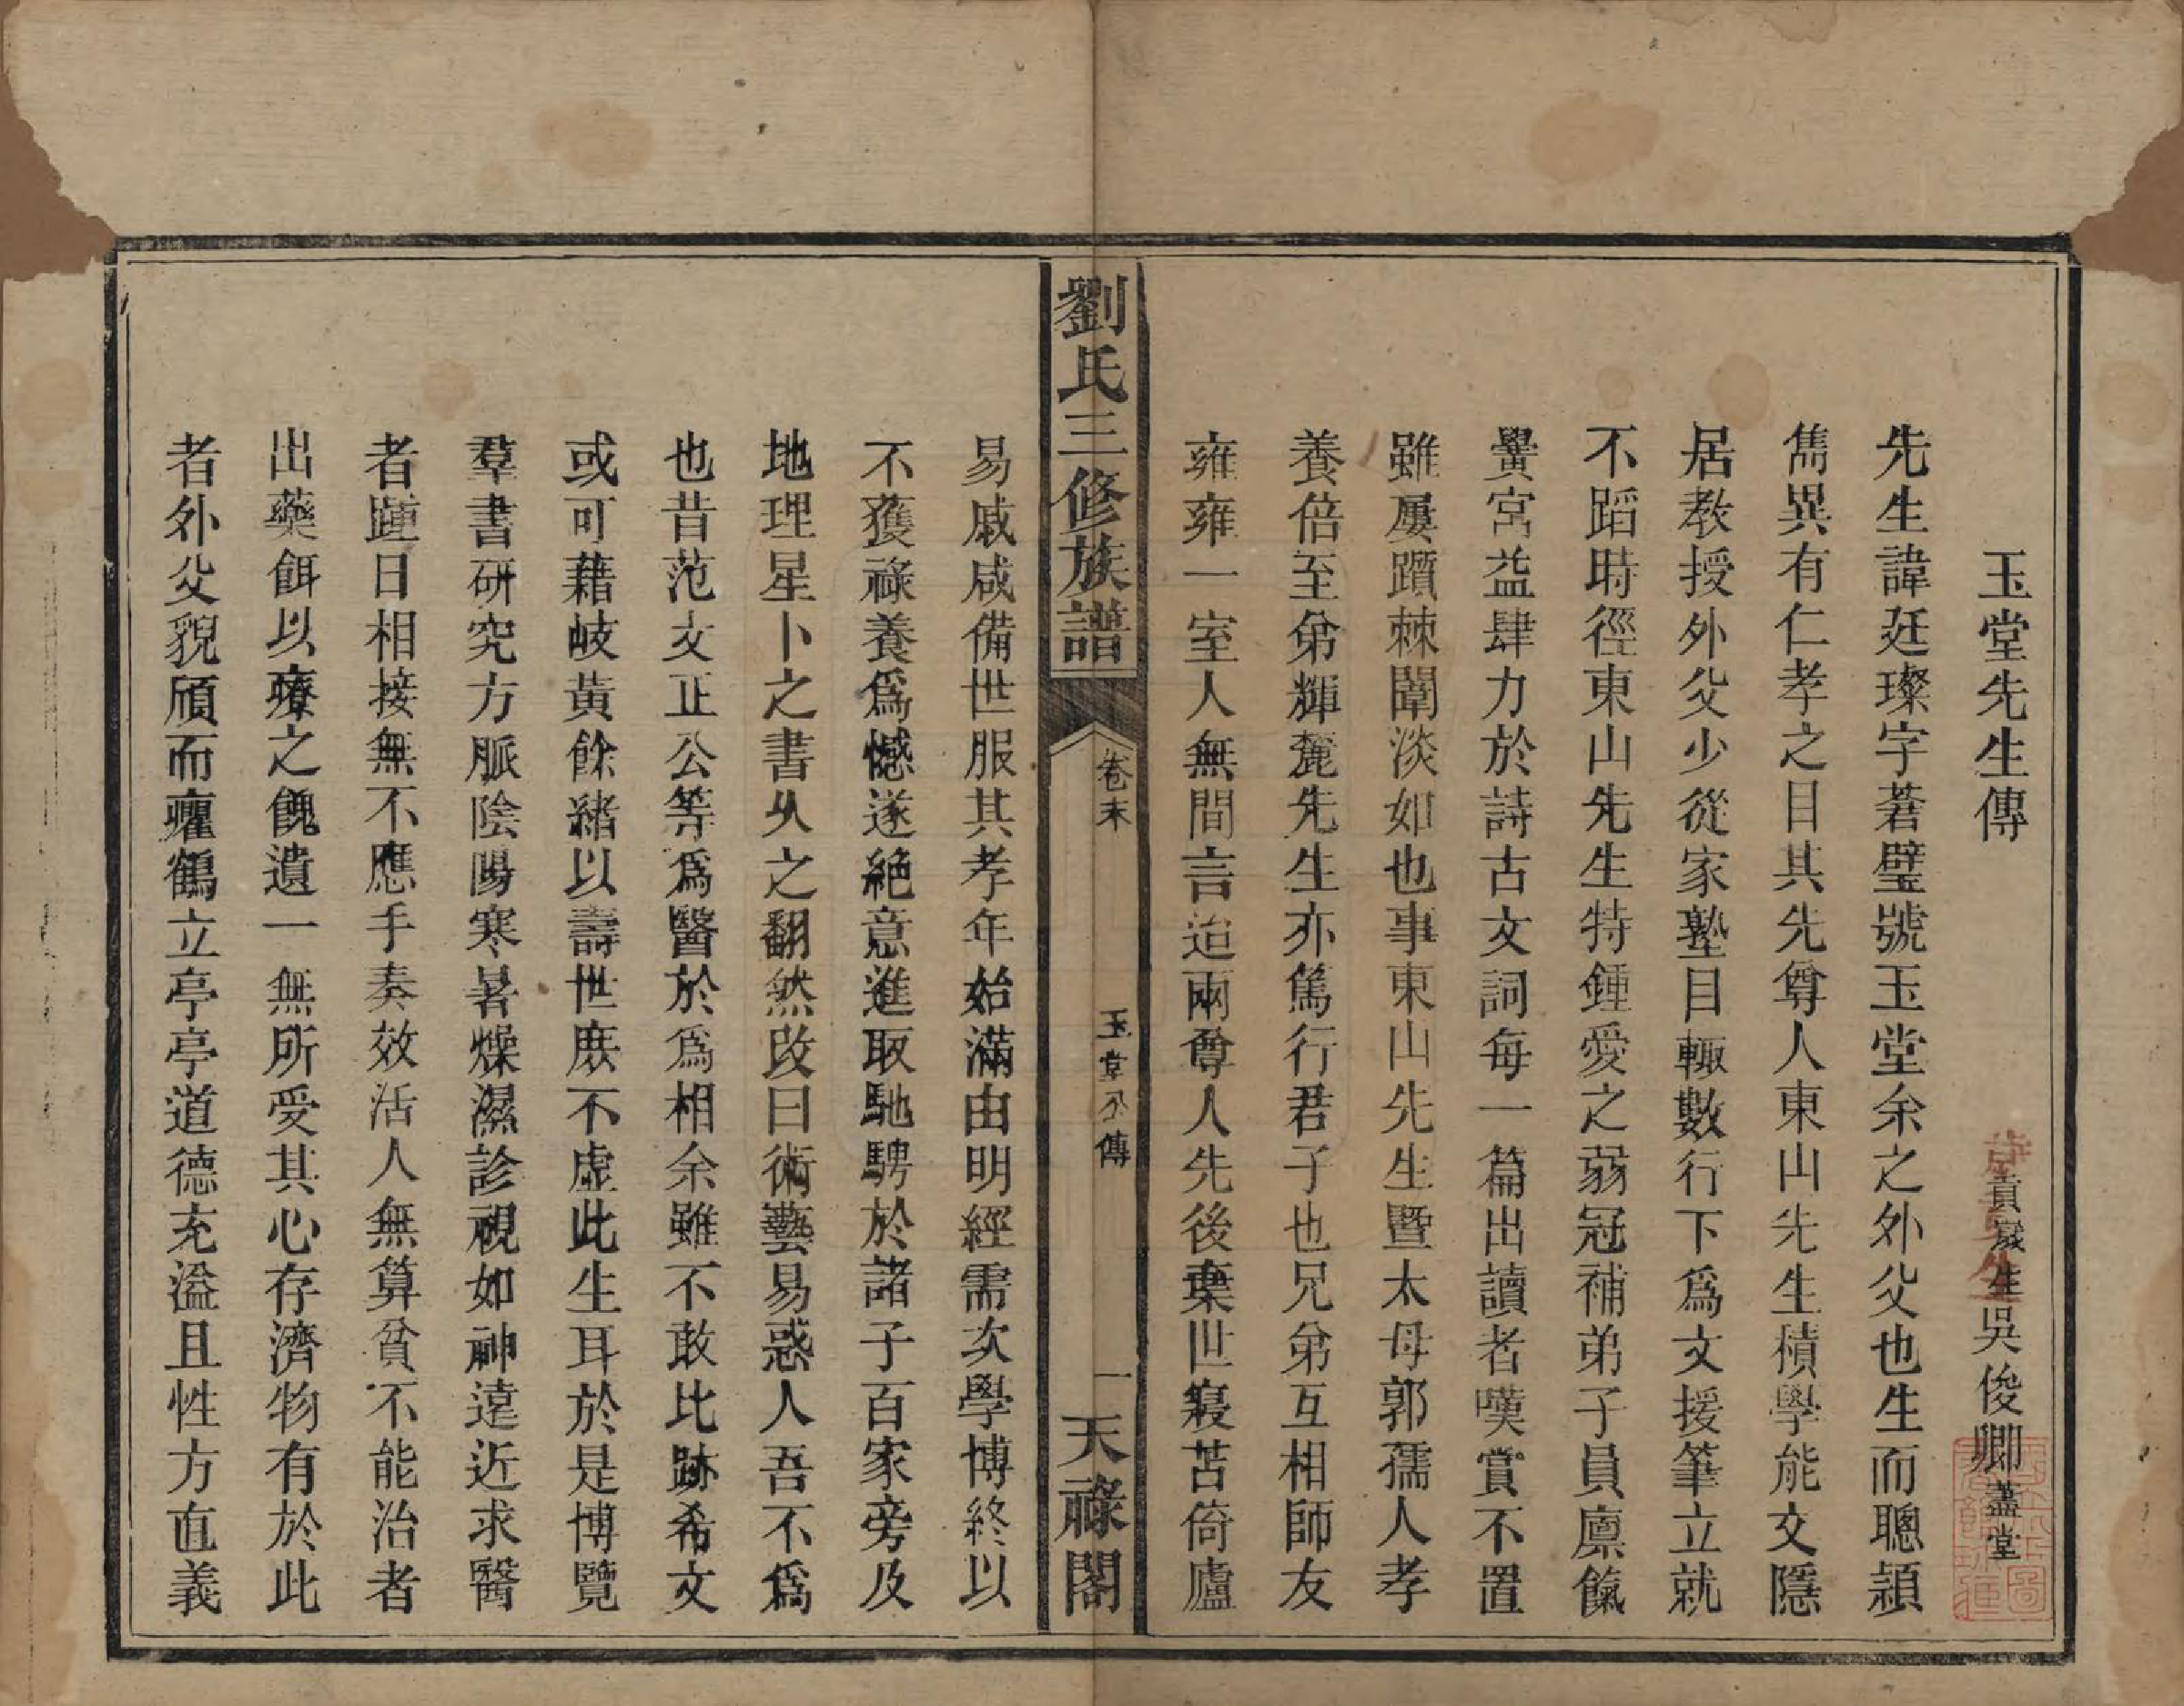 玉堂先生傳
歲貢生吳俊卿藎堂
先生諱廷璨字蒼璧號玉堂余之外父也生而聰穎
雋異有仁孝之目其先尊人東山先生積學能文隱
居教授外父少從家塾目輙數行下爲文援筆立就
不蹈時徑東山先生特鍾愛之弱冠補弟子員廪餼
黌宮益肆力於詩古文詞每一篇出讀者嘆賞不置
雖屢躓棘闈淡如也事東山先生暨太母郭孺人孝
養倍至弟輝麓先生亦篤行君子也兄弟互相師友
雍雍一室人無間言迨兩尊人先後棄世寢苫倚廬
劉氏三修族譜
卷末
玉堂公傳
一
天祿閣
易戚咸備世服其孝年始滿由明經需次學博終以
不獲祿養爲憾遂絕意進取馳騁於諸子百家旁及
地理星卜之書久之翻然改曰術藝易惑人吾不爲
也昔范文正公等爲醫於爲相余雖不敢比跡希文
或可藉岐黃餘緒以壽世庶不虛此生耳於是博覽
羣書研究方脈陰陽寒暑燥濕診視如神遠近求醫
者踵日相接無不應手奏效活人無算貧不能治者
出藥餌以療之餽遺一無所受其心存濟物有於此
者外父貌頎而癯鶴立亭亭道德充溢且性方直義